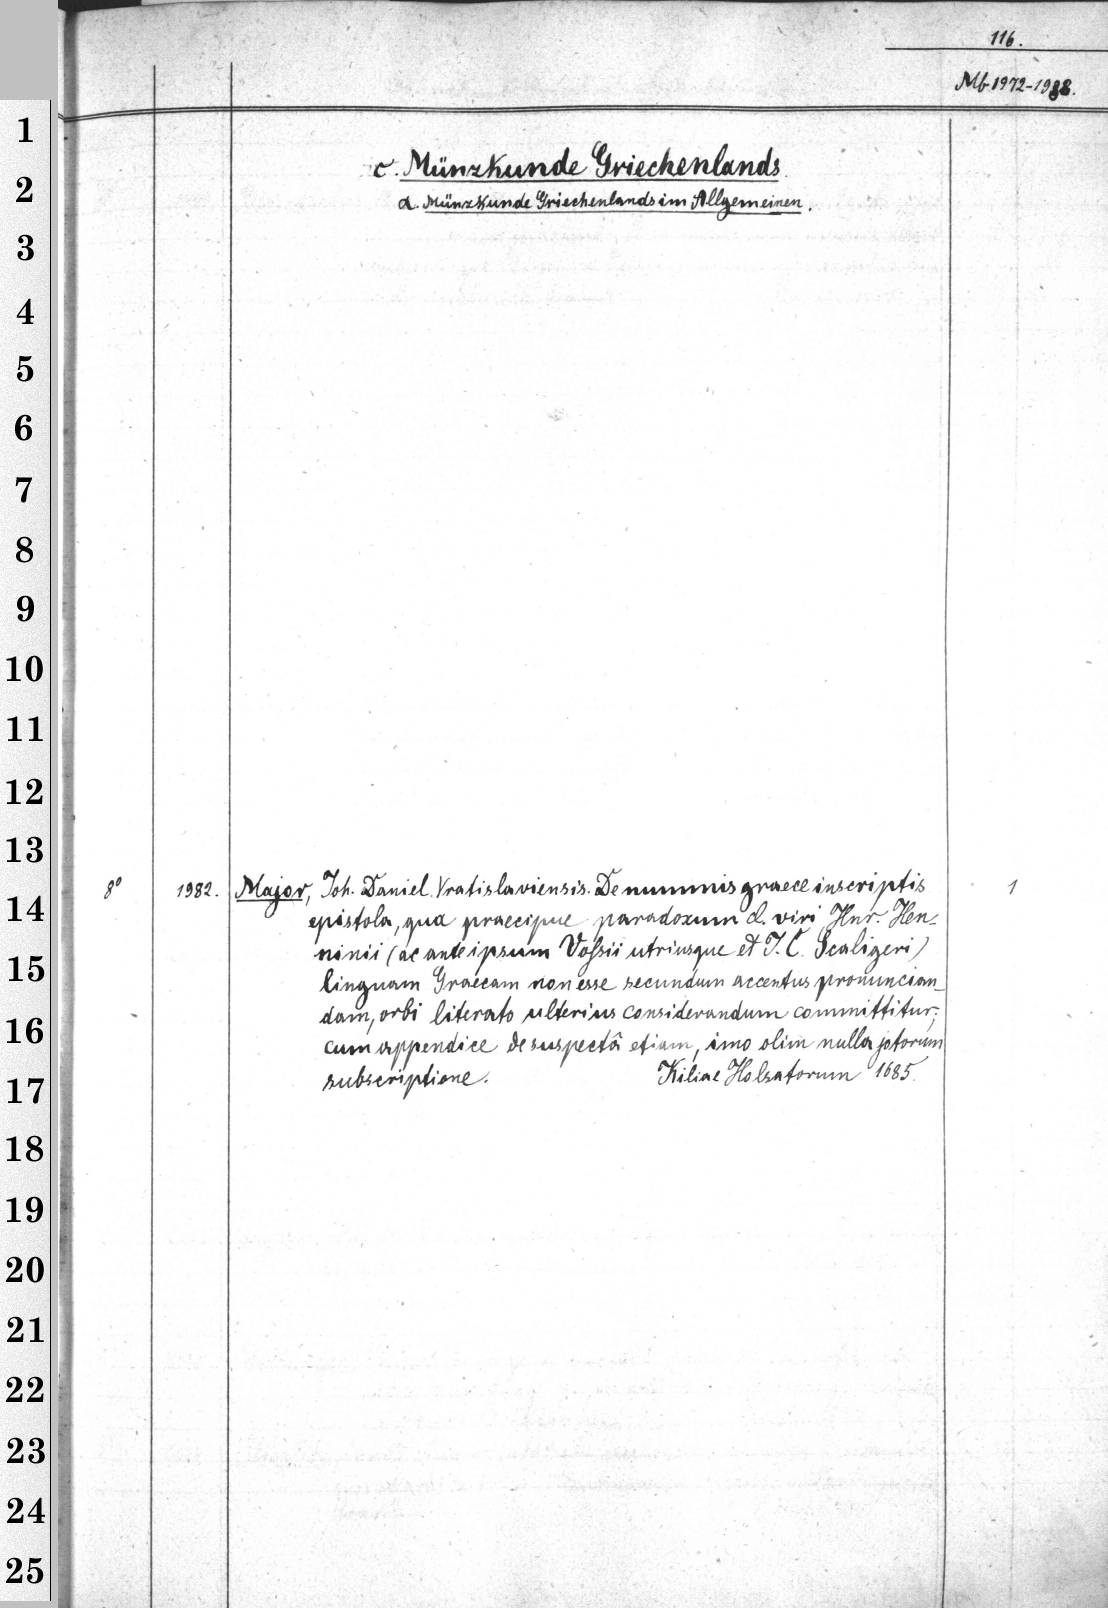 116.
Mb 1972-1988.
1
2
3
4
5
6
7
8
9
10
11
12
13
14
15
16
17
18
19
20
21
22
23
24
25
c. Münzkunde Griechenlands.
α. Münzkunde Griechenlands im Allgemeinen.
8° 1982. Major, Joh. Daniel. Vratislaviensis. De nummis graece inscriptis 1
epistola, qua praecipue paradoxum cl. viri, Hnr. Hen-
ninii (ac ante ipsum Voſsii utriusque et J. C. Scaligeri)
linguam Graecam non esse secundum accentus pronuncian-
dam, orbi literato ulterius considerandum committitur;
cum appendice de suspectâ etiam, imo olim nulla jotorum
subscriptione. Kiliae Holsatorum 1685.